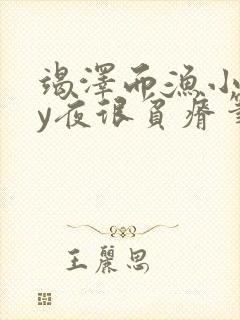 竭澤而漁小
y夜很負瘠筆
王麗思